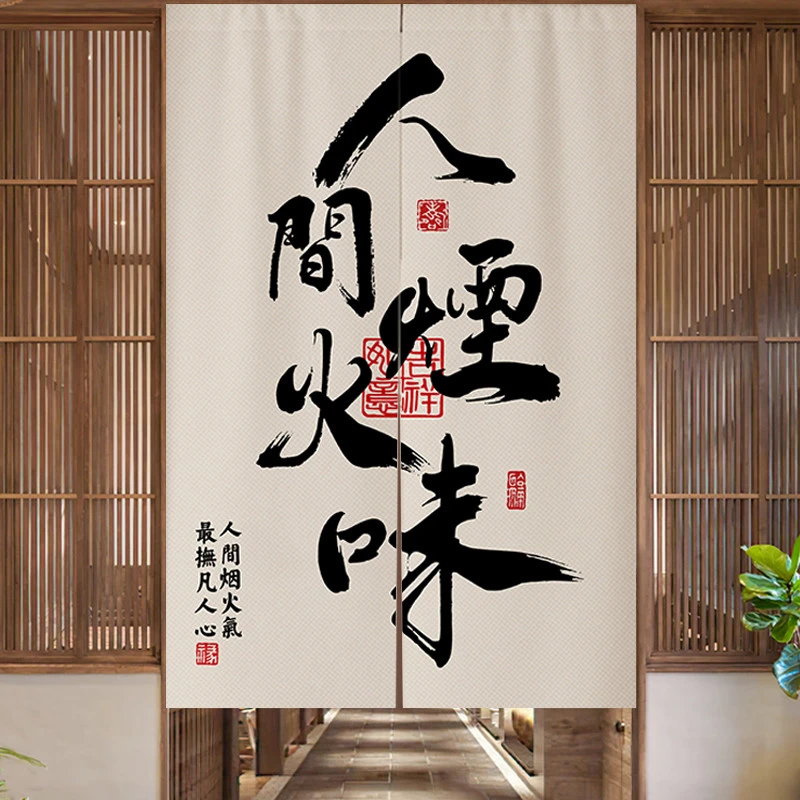 人間煙火味
吉祥
如意
人間烟火氣
最撫凡人心